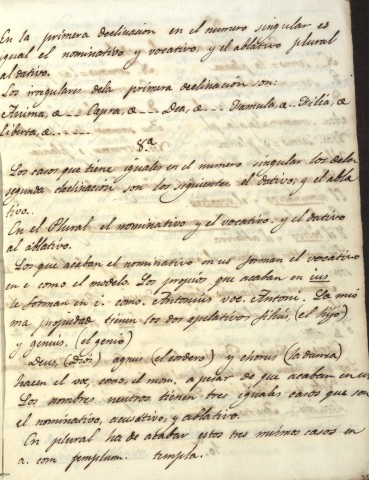 En la primera declinacion en el numero singular es
igual el nominativo y vocativo, y el ablativo plural
al dativo.
Los irregulares dela primera declinacion son:
Anima, æ - - Capra, æ - - Dea, æ - - - Famula, æ - Filia, æ
Liberta, æ - - - - -
8.ª
Los casos que tiene iguales en el numero singular los dela
segunda declinacion son los siguientes el dativo, y el abla
tivo.
En el Plural el nominativo y el vocativo. y el dativo
al ablativo.
Los que acaban el nominativo en us forman el vocativo
en e como el modelo. Los propios que acaban en ius
le forman en i. como. Antonius voc. Antoni. La mis
ma propiedad tienen los dos apelativos filius, (el hijo)
y genius. (el genio)
Deus, (Dios) agnus (el cordero) y chorus (la danza)
hacen el voc, como, el nom. a pesar de que acaban en us
Los nombres neutros tienen tres iguales casos que son
el nominativo, acusativo, y ablativo.
En plural ha de acabar estos tres mismos casos en
a. com templum. templa.